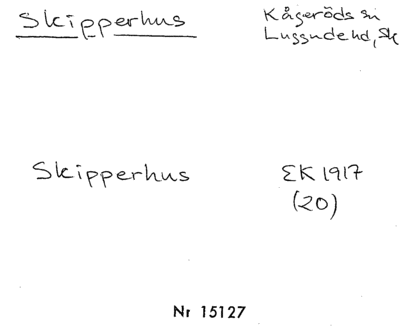 Skipperhus
Kågeröds sn
Luggude hd, Sk
Skipperhus
EK 1917
(20)
Nr 15127